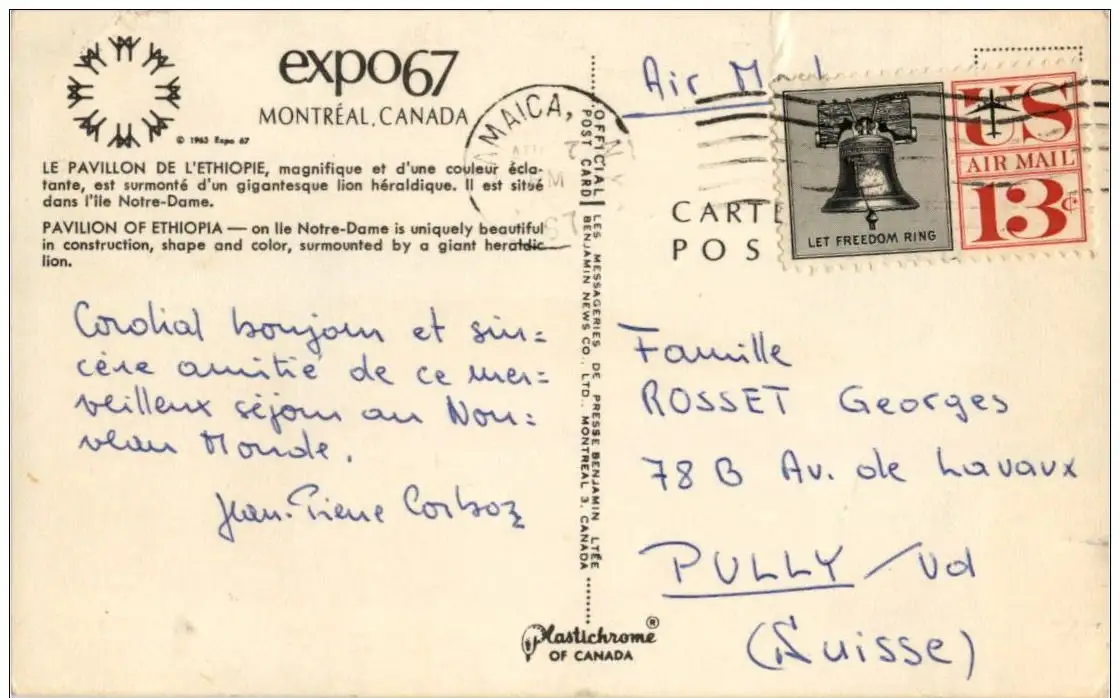 expo67
MONTRÉAL, CANADA
© 1963 Expo 67
LE PAVILLON DE L'ETHIOPIE, magnifique et d'une couleur écla-
tante, est surmonté d'un gigantesque lion héraldique. Il est situé
dans l'île Notre-Dame.
PAVILION OF ETHIOPIA — on Ile Notre-Dame is uniquely beautiful
in construction, shape and color, surmounted by a giant heraldic
lion.
Cordial bonjour et sin=
cère amitié de ce mer=
veilleux séjour au Nou=
veau Monde.
Jean-Pierre Corboz
AMAICA, N
OFFICIAL
POST CARD
LES MESSAGERIES DE PRESSE BENJAMIN LTÉE
BENJAMIN NEWS CO., LTD., MONTREAL 3, CANADA
Plastichrome®
OF CANADA
Air Mail
LET FREEDOM RING
US
AIR MAIL
13c
CARTE
POS
Famille
ROSSET Georges
78 B Av. de Lavaux
PULLY / Vd
(Suisse)